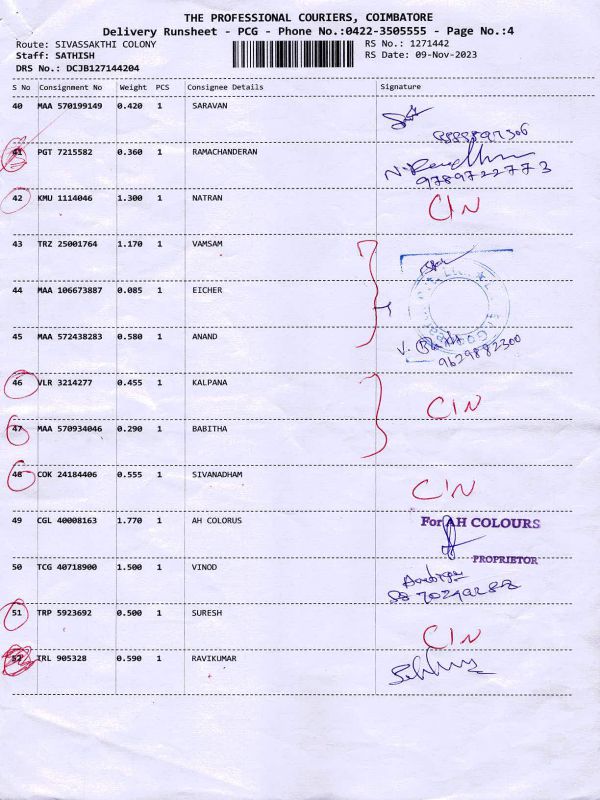 THE PROFESSIONAL COURIERS, COIMBATORE
Delivery Runsheet - PCG - Phone No.:0422-3505555 - Page No.:4
Route: SIVASSAKTHI COLONY RS No.: 1271442
Staff: SATHISH RS Date: 09-Nov-2023
DRS No.: DCJB127144204
S No Consignment No Weight PCS Consignee Details Signature
40 MAA 570199149 0.420 1 SARAVAN
41 PGT 7215582 0.360 1 RAMACHANDERAN
9789722773
42 KMU 1114046 1.300 1 NATRAN CIN
43 TRZ 25001764 1.170 1 VAMSAM
44 MAA 106673887 0.085 1 EICHER
45 MAA 572438283 0.580 1 ANAND
9629882300
46 VLR 3214277 0.455 1 KALPANA CIN
47 MAA 570934046 0.290 1 BABITHA
48 COK 24184406 0.555 1 SIVANADHAM CIN
49 CGL 40008163 1.770 1 AH COLORUS For AH COLOURS
PROPRIETOR
50 TCG 40718900 1.500 1 VINOD
51 TRP 5923692 0.500 1 SURESH CIN
52 IRL 905328 0.590 1 RAVIKUMAR